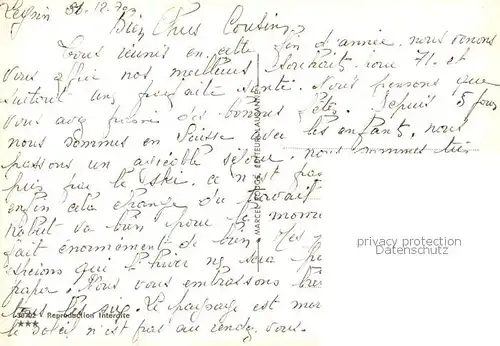 Leysin 31.12.70
Bien Chers Cousins
Tous réunis en cette fin d'année, nous venons
vous offrir nos meilleurs souhaits pour 71. et
surtout une parfaite santé. Nous pensons que
vous avez passé des bonnes fêtes. Depuis 5 jours
nous sommes en Suisse avec les enfants, nous
passons un agréable séjour. nous sommes très
pris par le ski. ce n'est pas
enfin cela change du travail
va bien pour le
fait énormément de bien.
que l'hiver ne sera
papa. Nous vous embrassons très
tous les six. Le paysage est
le soleil n'est pas au rendez-vous.
MARCEL EDITEUR LAUSANNE
privacy protection
Datenschutz
Reproduction Interdite
***